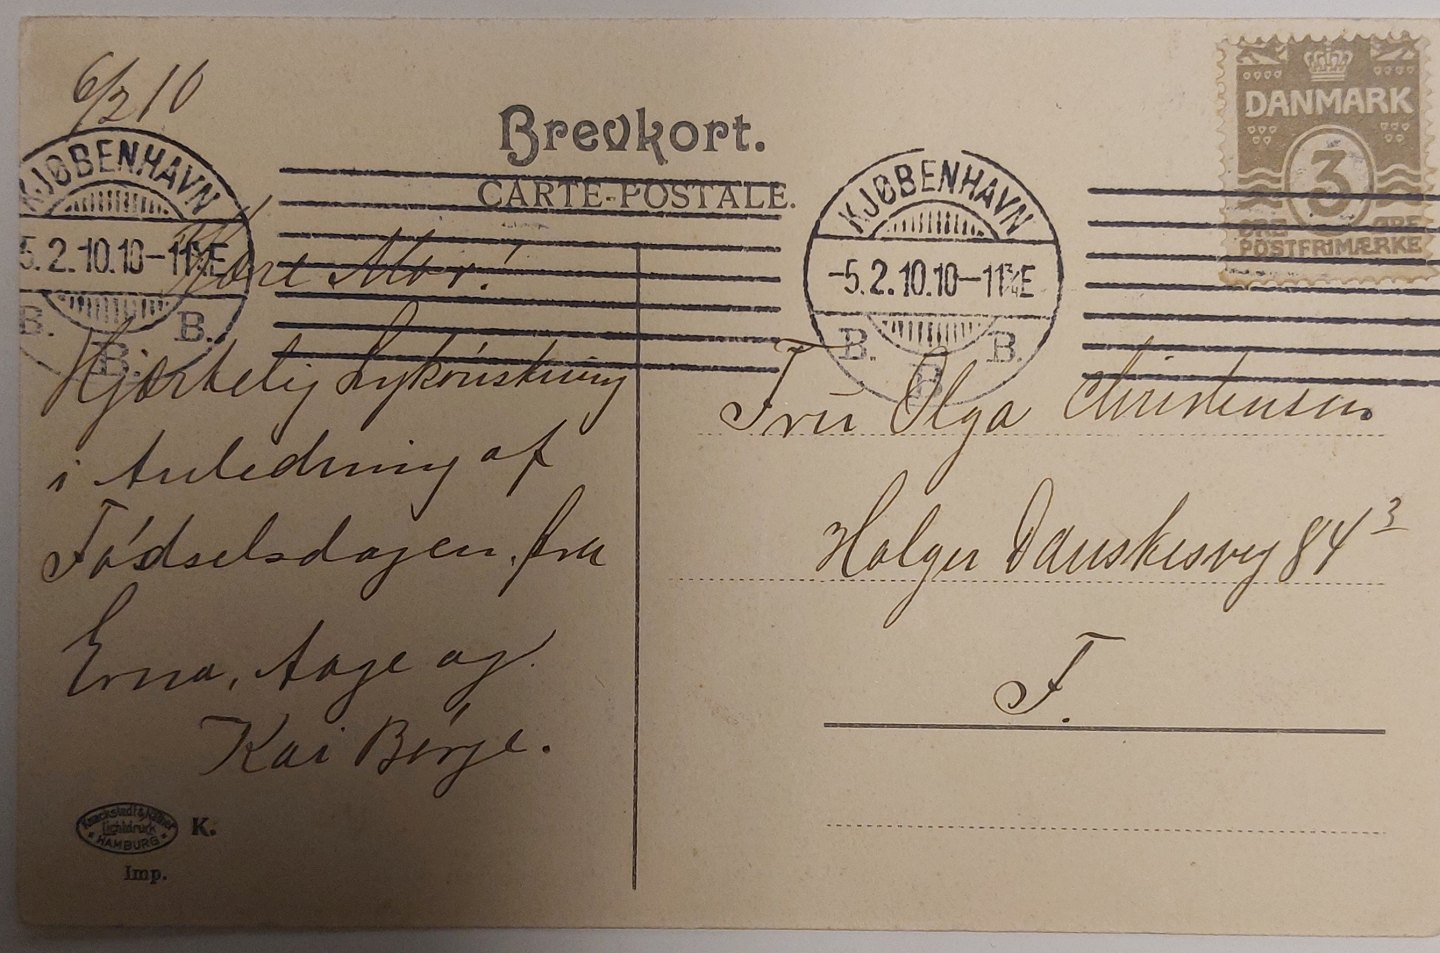 6/2 10
Brevkort.
CARTE-POSTALE.
DANMARK
3
ØRE ØRE
POSTFRIMÆRKE
KJØBENHAVN
5.2.10.10-11 E
B. B. B.
KJØBENHAVN
-5.2.10.10-11 E
B. B. B.
Kære Mor!
Hjærtelig Lykønskning
i Anledning af
Fødselsdagen, fra
Erna, Aage og
Kai Børge.
Fru Olga Christensen.
Holger Danskesvej 84 3
F.
Knackstedt & Näther
Lichtdruck
HAMBURG
K.
Imp.